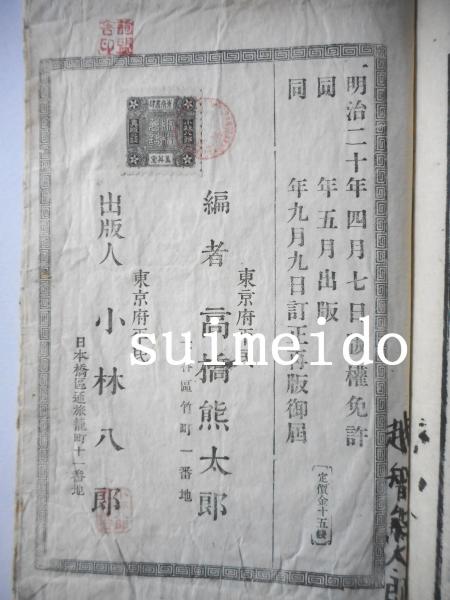 明治二十年四月七日版權免許
同年五月出版
同年九月九日訂正再版御届
〔定價金十五錢〕
東京府平民
編者 高橋熊太郎
區竹町一番地
東京府平民
出版人 小林八郎
日本橋區通旅籠町十一番地
越智熊太郎
suimeido